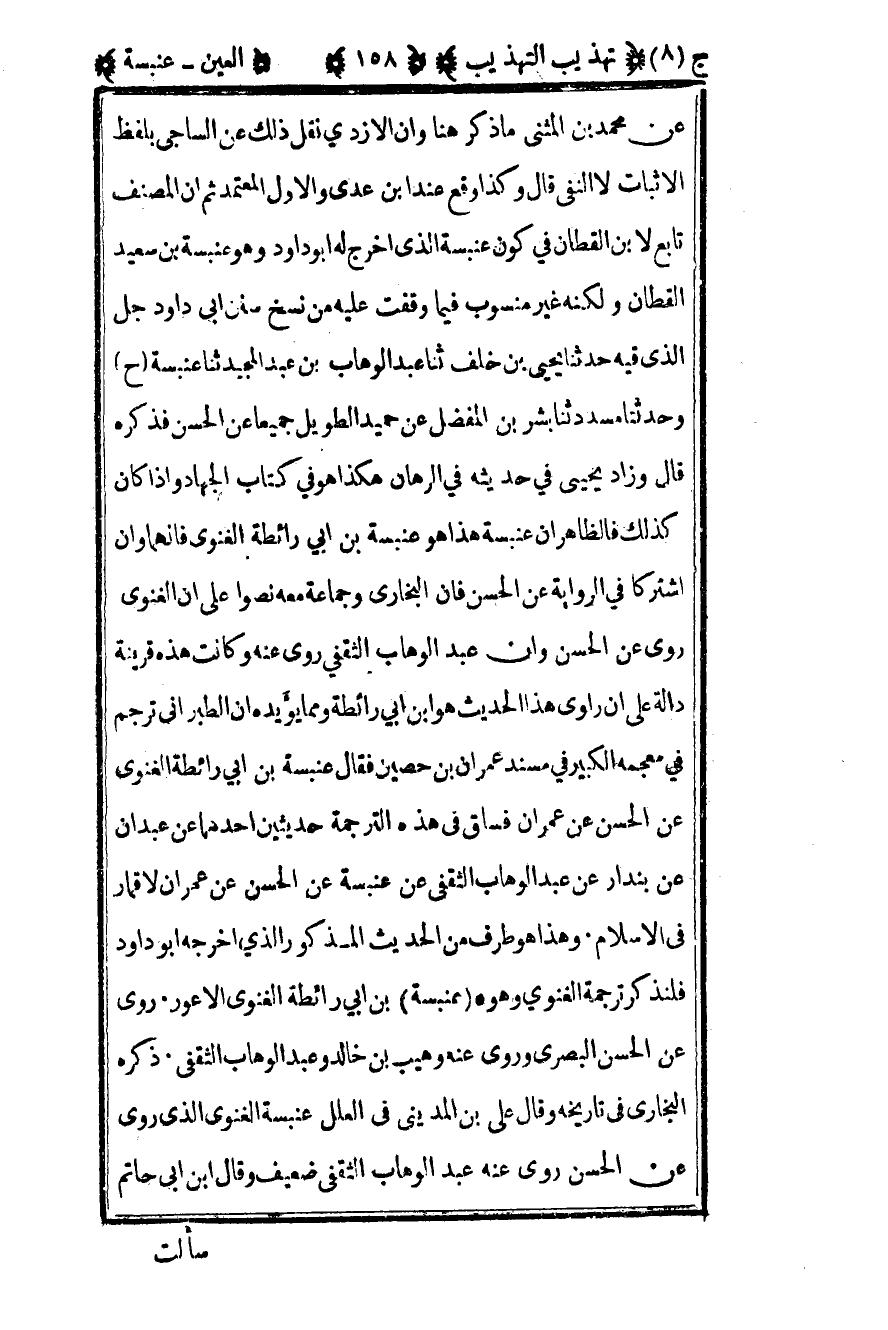 ج (٨) ﴿ تهذيب التهذيب ﴾ ﴿ ١٥٨ ﴾ ﴿ العين - عنبسة ﴾
عن محمد بن المثنى ماذكر هنا وان الازدي نقل ذلك عن الساجى بلفظ
الاثبات لا النفى قال وكذا وقع عند ابن عدى والاول المعتمد ثم ان المصنف
تابع لا بن القطان في كون عنبسة الذى اخرج له ابو داود وهو عنبسة بن سعيد
القطان ولكنه غير منسوب فيما وقفت عليه من نسخ سنن ابي داود جل
الذى فيه حدثنا يحيى بن خلف ثنا عبد الوهاب بن عبد المجيد ثنا عنبسة (ح)
وحدثنا مسدد ثنا بشر بن المفضل عن حميد الطويل جميعا عن الحسن فذكره
قال وزاد يحيى في حديثه في الرهان هكذا هو في كتاب الجهاد واذا كان
كذلك فالظاهر ان عنبسة هذا هو عنبسة بن ابي رائطة الغنوى فانهما وان
اشتركا في الرواية عن الحسن فان البخارى وجماعة معه نصوا على ان الغنوى
روى عن الحسن وان عبد الوهاب الثقفي روى عنه وكانت هذه قرينة
دالة على ان راوى هذا الحديث هو ابن ابي رائطة ومما يؤيده ان الطبرانى ترجم
في معجمه الكبير في مسند عمران بن حصين فقال عنبسة بن ابي رائطة الغنوى
عن الحسن عن عمران فساق فى هذه الترجمة حديثين احدهما عن عبدان
عن بندار عن عبد الوهاب الثقفى عن عنبسة عن الحسن عن عمران لاقمار
فى الاسلام ٠ وهذا هو طرف من الحديث المذكور الذي اخرجه ابو داود
فلنذكر ترجمة الغنوي وهو ٥ (عنبسة) بن ابي رائطة الغنوى الاعور ٠ روى
عن الحسن البصرى وروى عنه وهيب بن خالد وعبد الوهاب الثقفى ٠ ذكره
البخارى فى تاريخه وقال على بن المديني فى العلل عنبسة الغنوى الذى روى
عن الحسن روى عنه عبد الوهاب الثقفى ضعيف وقال ابن ابى حاتم
سألت